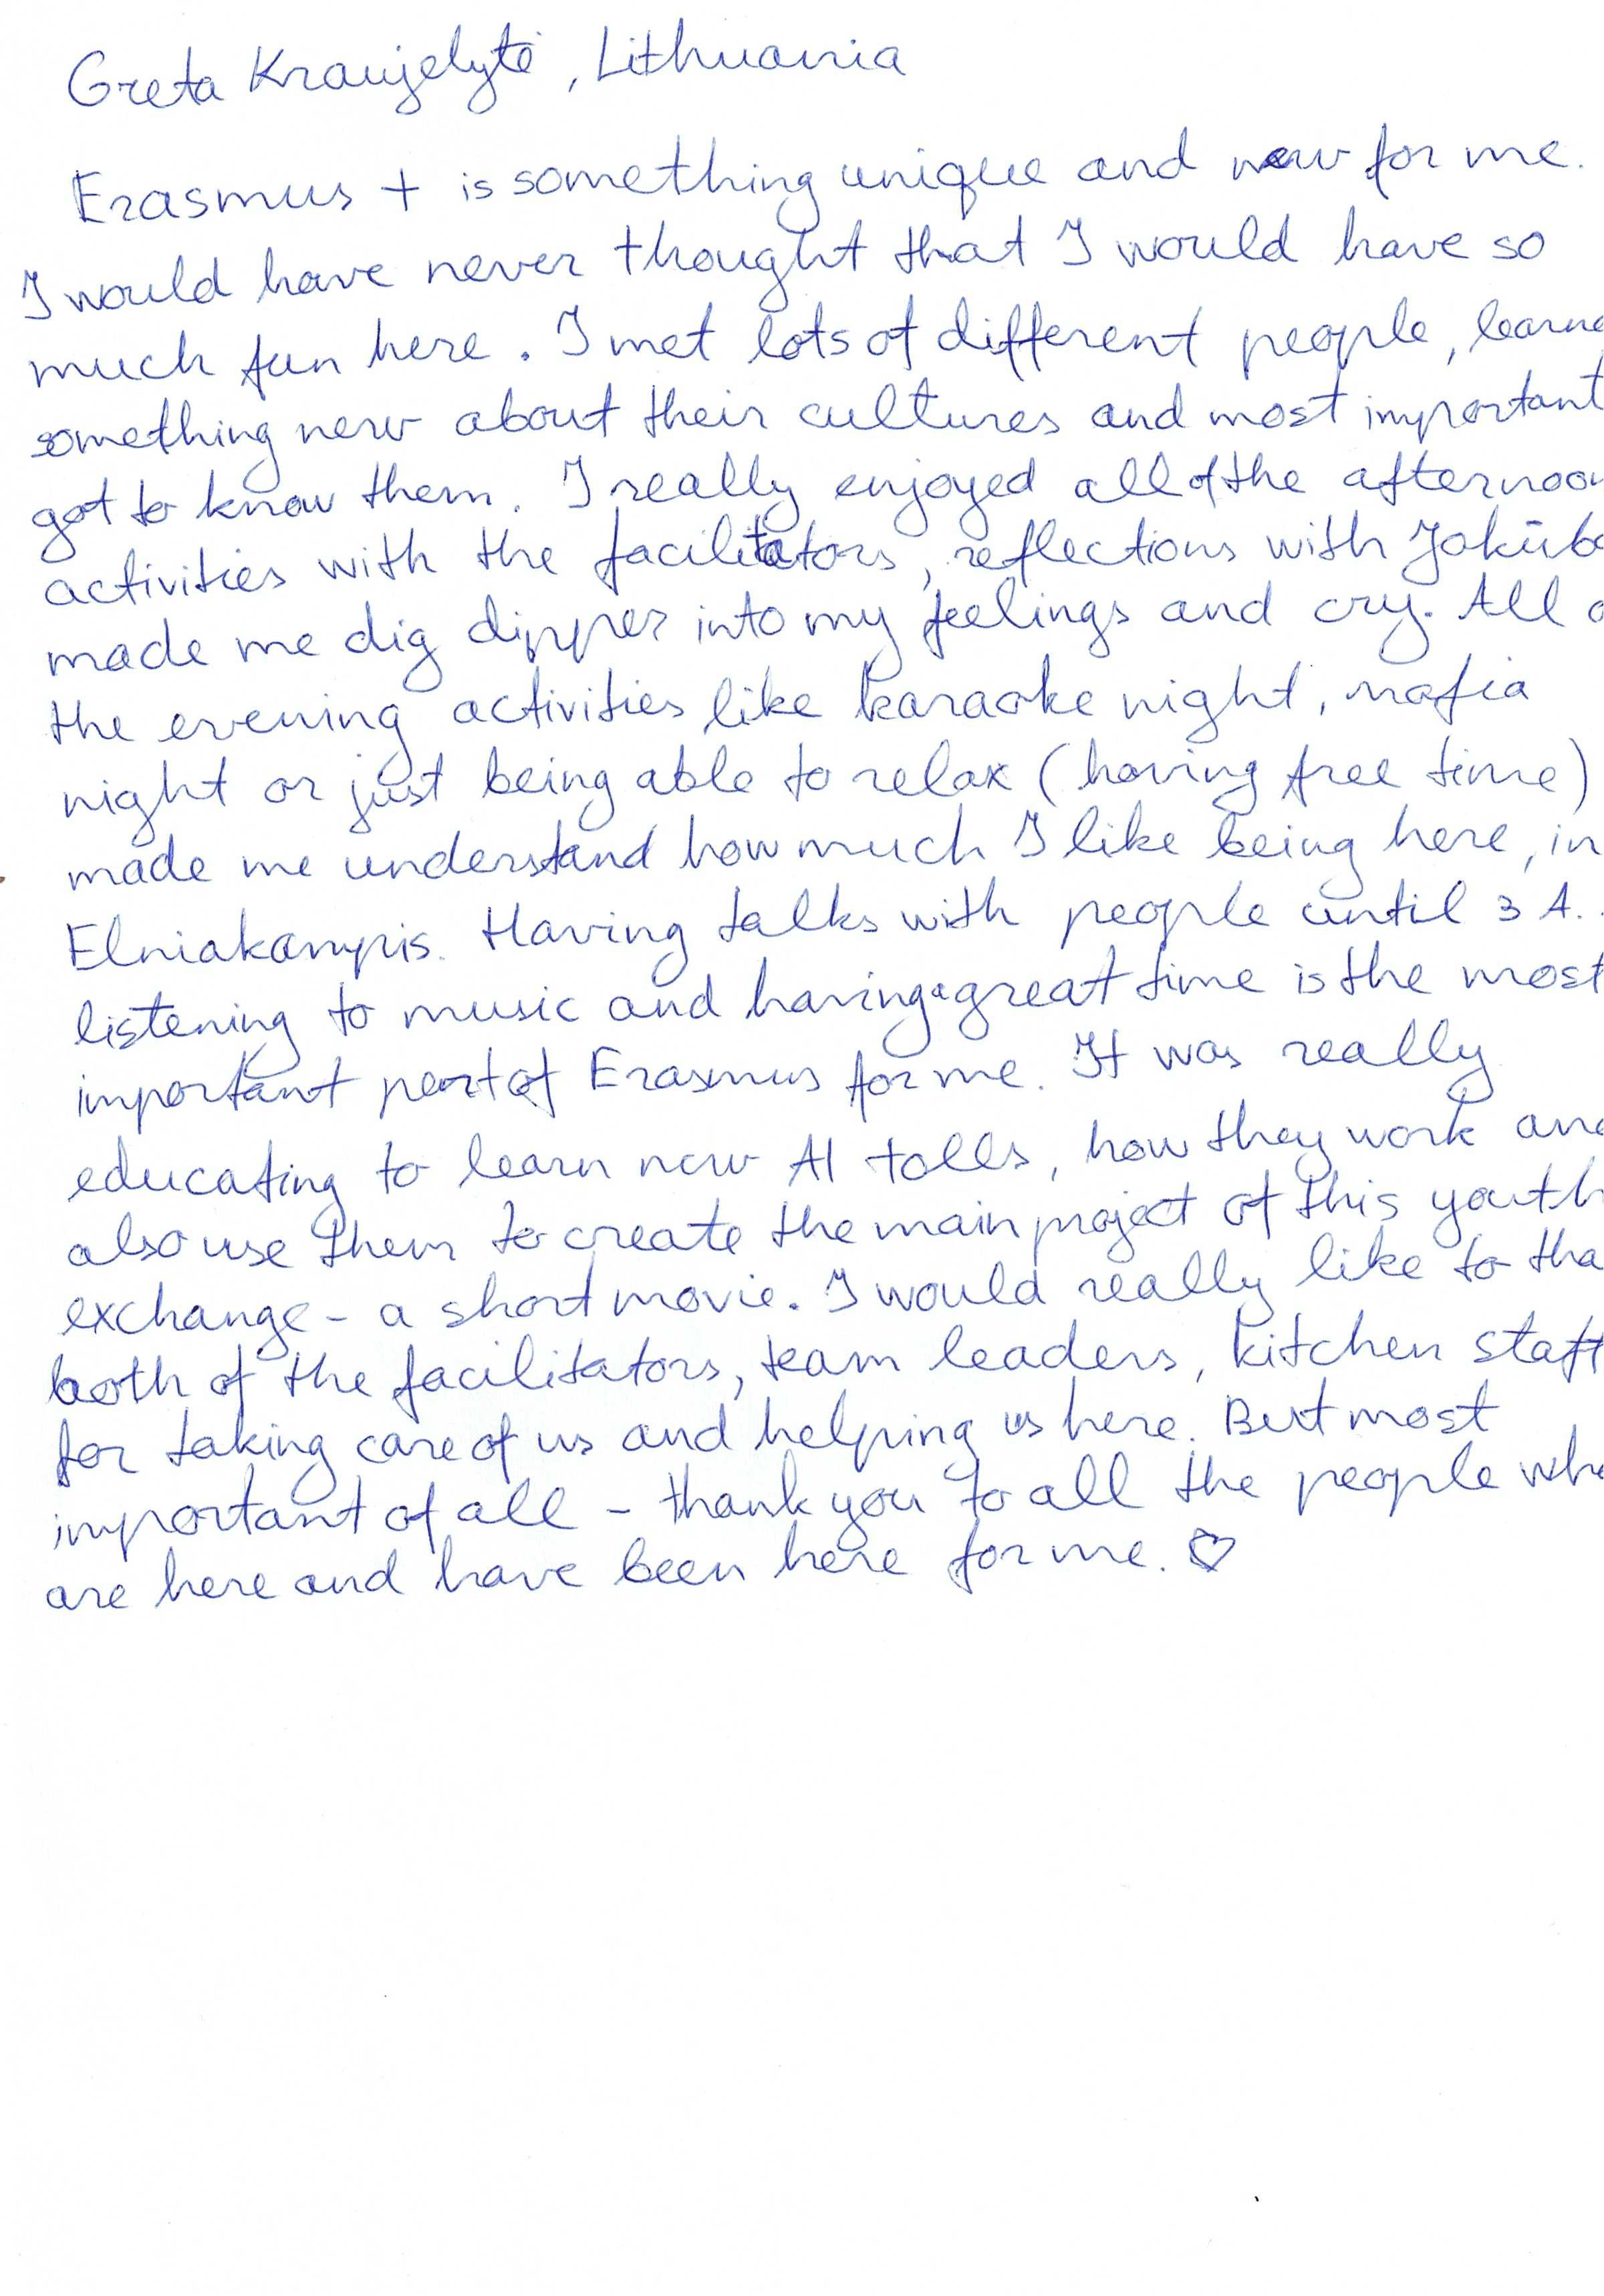 Greta Kraujelytė, Lithuania
Erasmus + is something unique and new for me.
I would have never thought that I would have so
much fun here. I met lots of different people, learne
something new about their cultures and most important
got to know them. I really enjoyed all of the afternoon
activities with the facilitators, reflections with Jokūbo
made me dig dipper into my feelings and cry. All o
the evening activities like karaoke night, mafia
night or just being able to relax (having free time)
made me understand how much I like being here, in
Elniakampis. Having talks with people until 3 A.
listening to music and having a great time is the most
important part of Erasmus for me. It was really
educating to learn new AI tolls, how they work and
also use them to create the main project of this youth
exchange - a short movie. I would really like to tha
both of the facilitators, team leaders, kitchen staff
for taking care of us and helping us here. But most
important of all - thank you to all the people who
are here and have been here for me. ♡